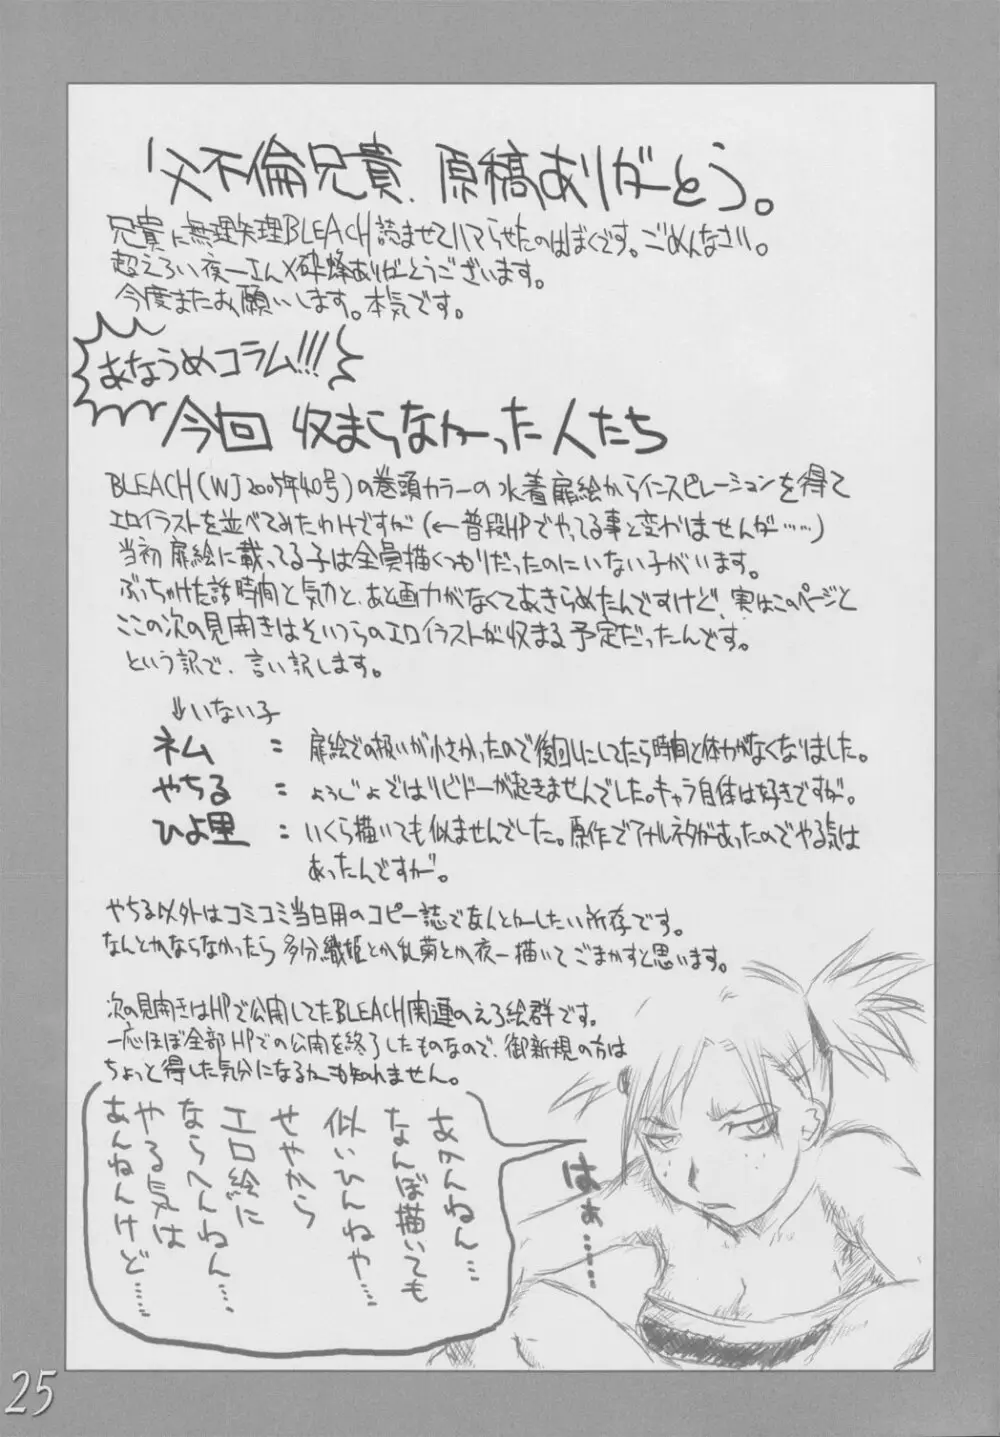 父不倫兄貴、原稿ありがーとう。
兄貴に無理矢理BLEACH読ませてハマらせたのはぼくです。ごめんなさい。
超えろい夜一さん×砕蜂ありがとうございます。
今度またお願いします。本気です。
あなうめコラム!!!
今回 収まらなかった人たち
BLEACH(WJ2005年40号)の巻頭カラーの水着扉絵からインスピレーションを得て
エロイラストを並べてみたわけですが(←普段HPでやってる事と変わりませんが……)
当初扉絵に載ってる子は全員描くつもりだったのにいない子がいます。
ぶっちゃけた話時間と気力と、あと画力がなくてあきらめたんですけど、実はこのページと
ここの次の見開きはそいつらのエロイラストが収まる予定だったんです。
という訳で、言い訳します。
↓いない子
ネム : 扉絵での扱いが小さかったので後回しにしてたら時間と体力がなくなりました。
やちる : ようじょではリビドーが起きませんでした。キャラ自体は好きですが。
ひよ里 : いくら描いても似ませんでした。原作でアナルネタがあったのでやる気は
あったんですが。
やちる以外はコミコミ当日用のコピー誌でなんとかしたい所存です。
なんとかならなかったら多分織姫とか乱菊とか夜一描いてごまかすと思います。
次の見開きはHPで公開してたBLEACH関連のえろ絵群です。
一応ほぼ全部HPでの公開を終了したものなので、御新規の方は
ちょっと得した気分になるかも知れません。
あかんねん…
なんぼ描いても
似いひんねや…
せやから
エロ絵に
ならへんねん…、
やる気は
あんねんけど……
はぁ……
25